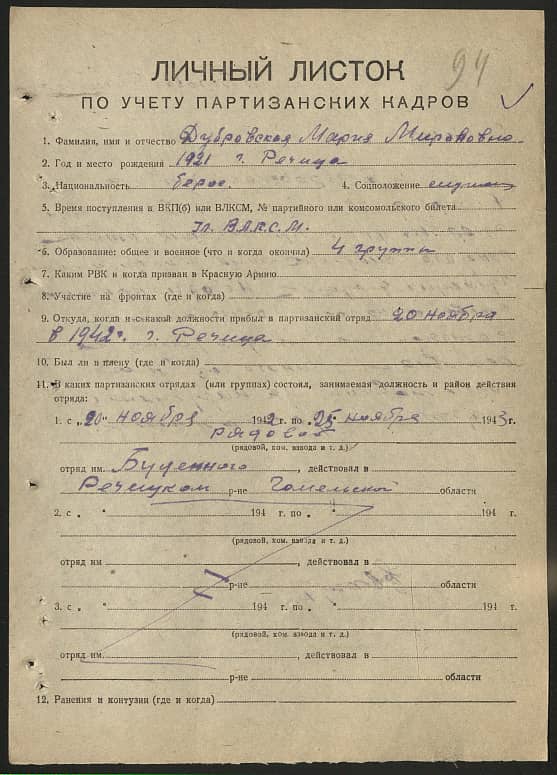 94
ЛИЧНЫЙ ЛИСТОК
ПО УЧЕТУ ПАРТИЗАНСКИХ КАДРОВ
1. Фамилия, имя и отчество Дубровская Мария Мироновна
2. Год и место рождения 1921 г. Речица
3. Национальность белос. 4. Соцположение служащ
5. Время поступления в ВКП(б) или ВЛКСМ, № партийного или комсомольского билета
Чл. ВЛКСМ.
6. Образование: общее и военное (что и когда окончил) 4 группы
7. Каким РВК и когда призван в Красную Армию
8. Участие на фронтах (где и когда)
9. Откуда, когда и с какой должности прибыл в партизанский отряд 20 ноября
в 1942 г. г. Речица
10. Был ли в плену (где и когда)
11. В каких партизанских отрядах (или группах) состоял, занимаемая должность и район действия
отряда:
1. с „20" ноября 1942 г. по „25" ноября 1943 г.
рядовой
(рядовой, ком. взвода и т. д.)
отряд им. Буденного, действовал в
Речицком р-не Гомельской области
2. с „ " 194 г. по „ " 194 г.
(рядовой, ком. взвода и т. д.)
отряд им., действовал в
р-не области
3. с „ " 194 г. по „ " 194 г.
(рядовой, ком. взвода и т. д.)
отряд им., действовал в
р-не области
12. Ранения и контузии (где и когда)